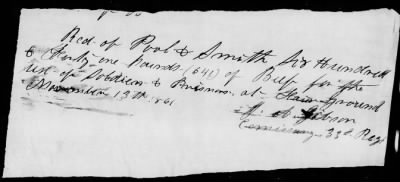 Recd of Pool & Smith Six Hundred
& Forty-one Pounds (641) of Beef for the
use of Soldiers & Prisoners at
November 13th 1861
Gibson
Commissary 33d Regt